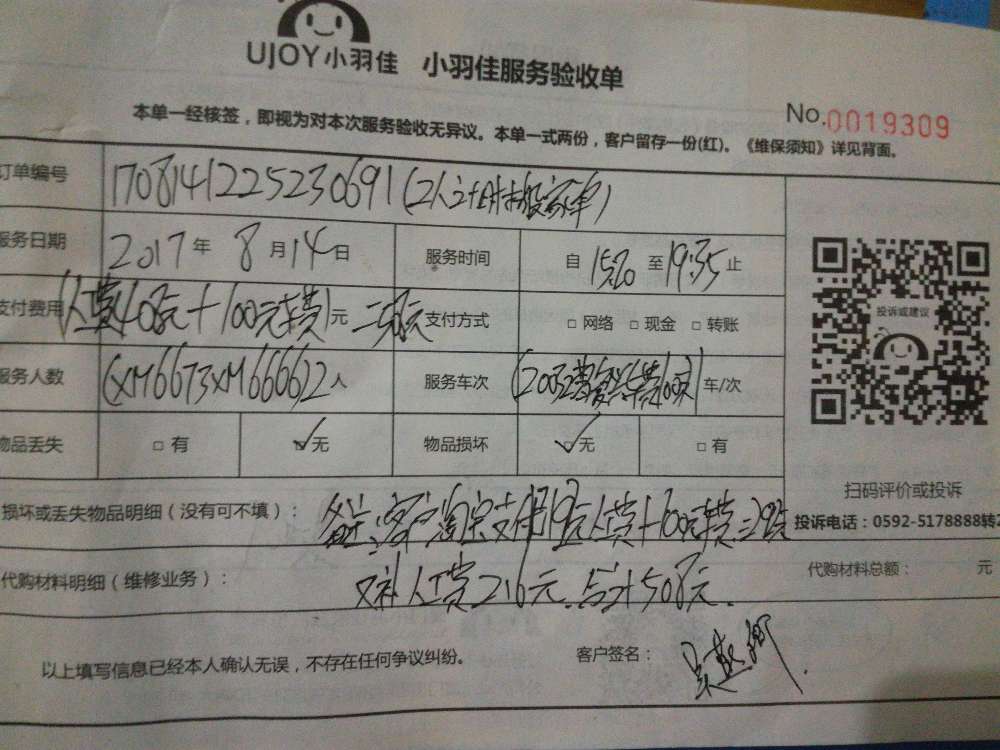 UJOY小羽佳 小羽佳服务验收单
No.0019309
本单一经核签，即视为对本次服务验收无异议。本单一式两份，客户留存一份(红)。《维保须知》详见背面。
订单编号 1708141225230691(2人计时搬家单)
服务日期 2017年8月14日 服务时间 自15:20至19:35止
支付费用 (人费408元+100元车费)元=508元 支付方式 □网络 □现金 □转账
投诉或建议
服务人数 (XM6673XM6666)2人 服务车次 车/次
物品丢失 □有 ☑无 物品损坏 ☑无 □有
扫码评价或投诉
损坏或丢失物品明细（没有可不填）： 备注:客户淘宝支付192元人费+100元车费=292元
投诉电话：0592-5178888转2
代购材料明细（维修业务）： 又补人费216元.合计508元.
代购材料总额： 元
以上填写信息已经本人确认无误，不存在任何争议纠纷。 客户签名：